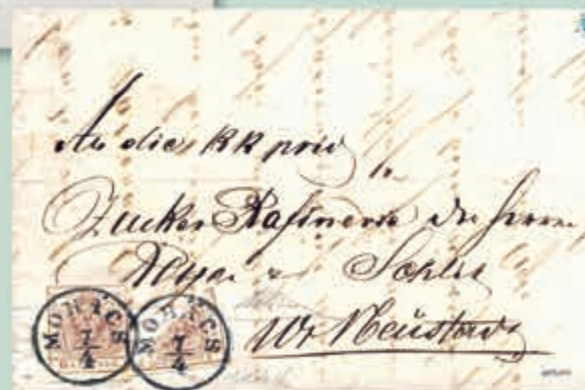 An die kk priv
Zucker Rafinerie der Herren
&
Wr Neustadt
MOHÁCS
7/4
MOHÁCS
7/4